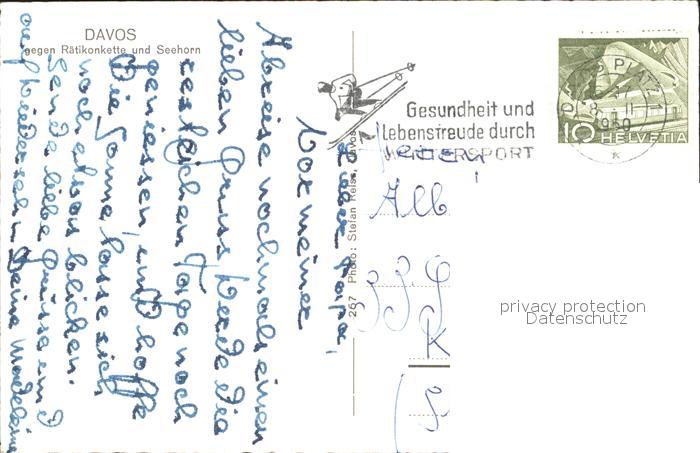 DAVOS
gegen Rätikonkette und Seehorn
Lieber Papa,
Vor meiner
Abreise nochmals einen
lieben Gruss. Werde die
restlichen Tage noch
geniessen, und hoffe
die Sonne lasse sich
noch etwas blicken.
Sende liebe Grüsse und
auf Wiedersehn Deine Madeleine
267 Photo: Stefan Reiss, Davos
Gesundheit und
Lebensfreude durch
WINTERSPORT
DAVOS PLATZ 1
1959
10 HELVETIA
Herrn
Alb
K
privacy protection
Datenschutz